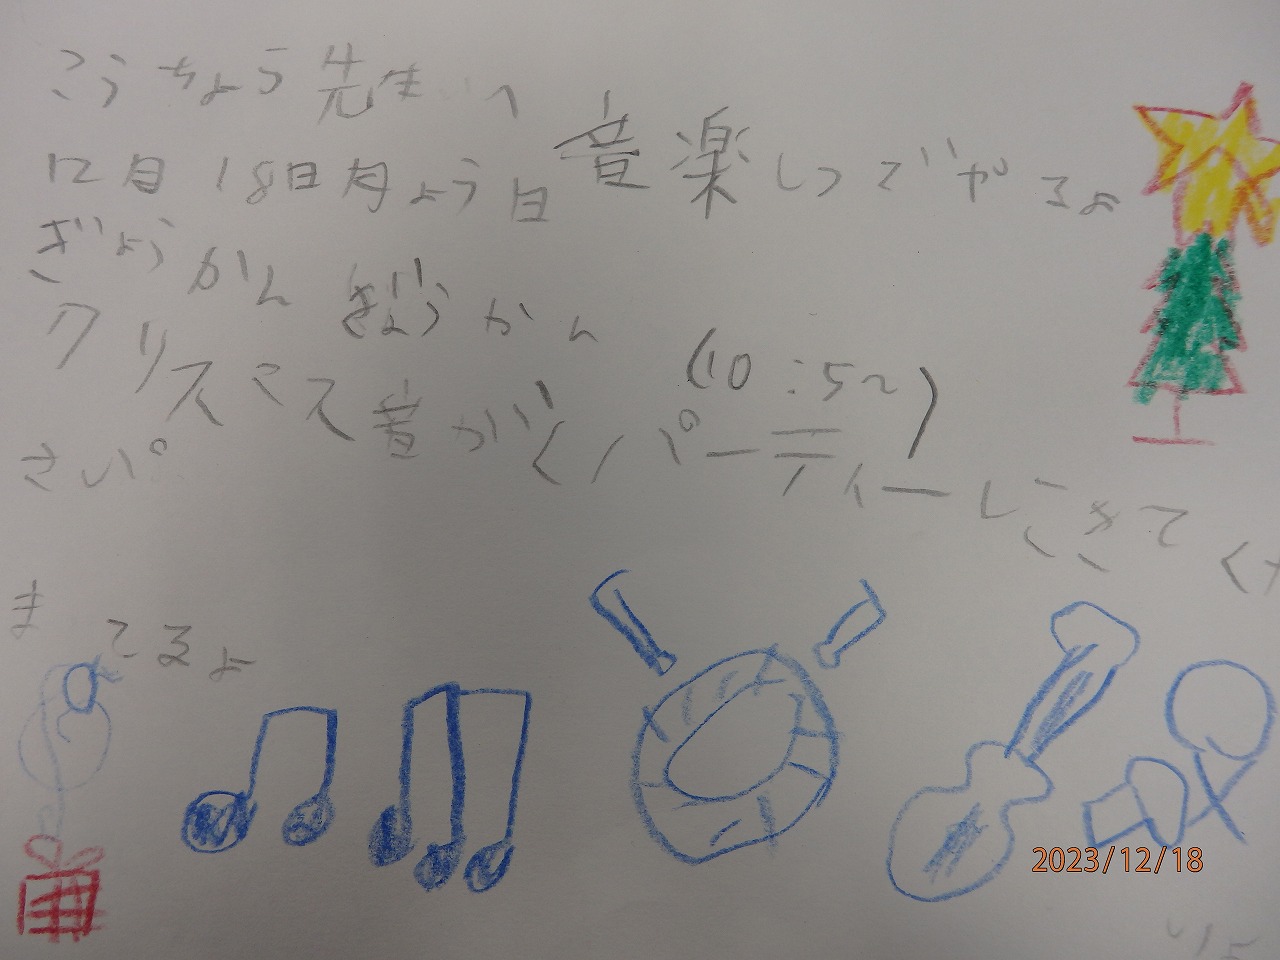 こうちょう先生へ
12月18日月よう日音楽しつでやるよ
ぎょうかんぎょうかん
(10:52)
クリスマス音がくパーティーにきてくだ
さい。
まってるよ
2023/12/18